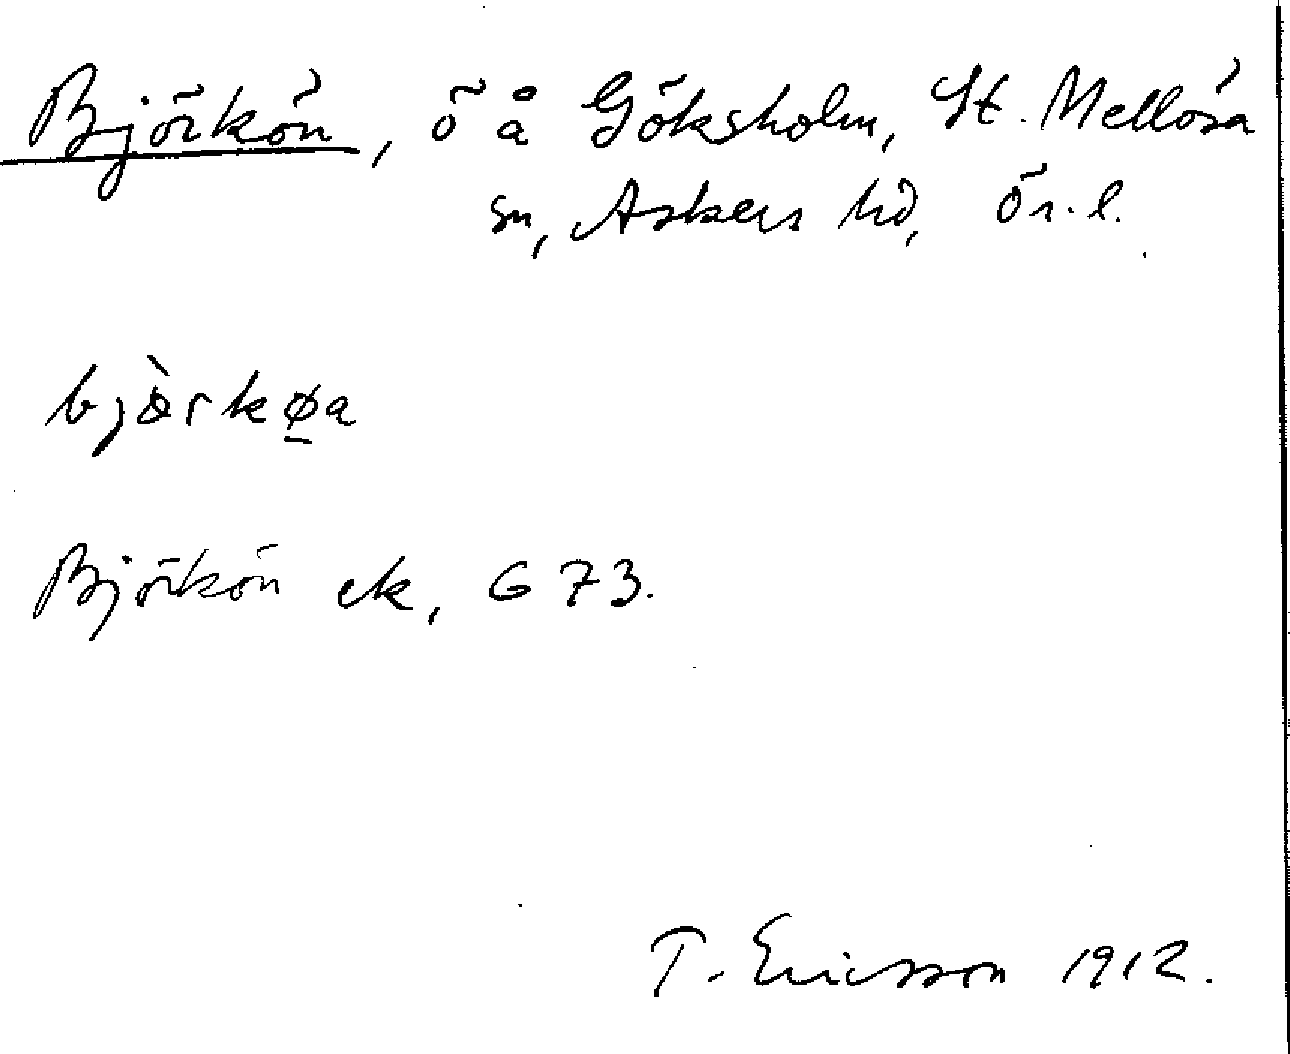 Björkön, ö å Göksholm, St. Mellösa
sn, Askers hd, Ör. l.
bjò̵rkø̠a
Björkön ek, G 73.
T. Ericsson 1912.